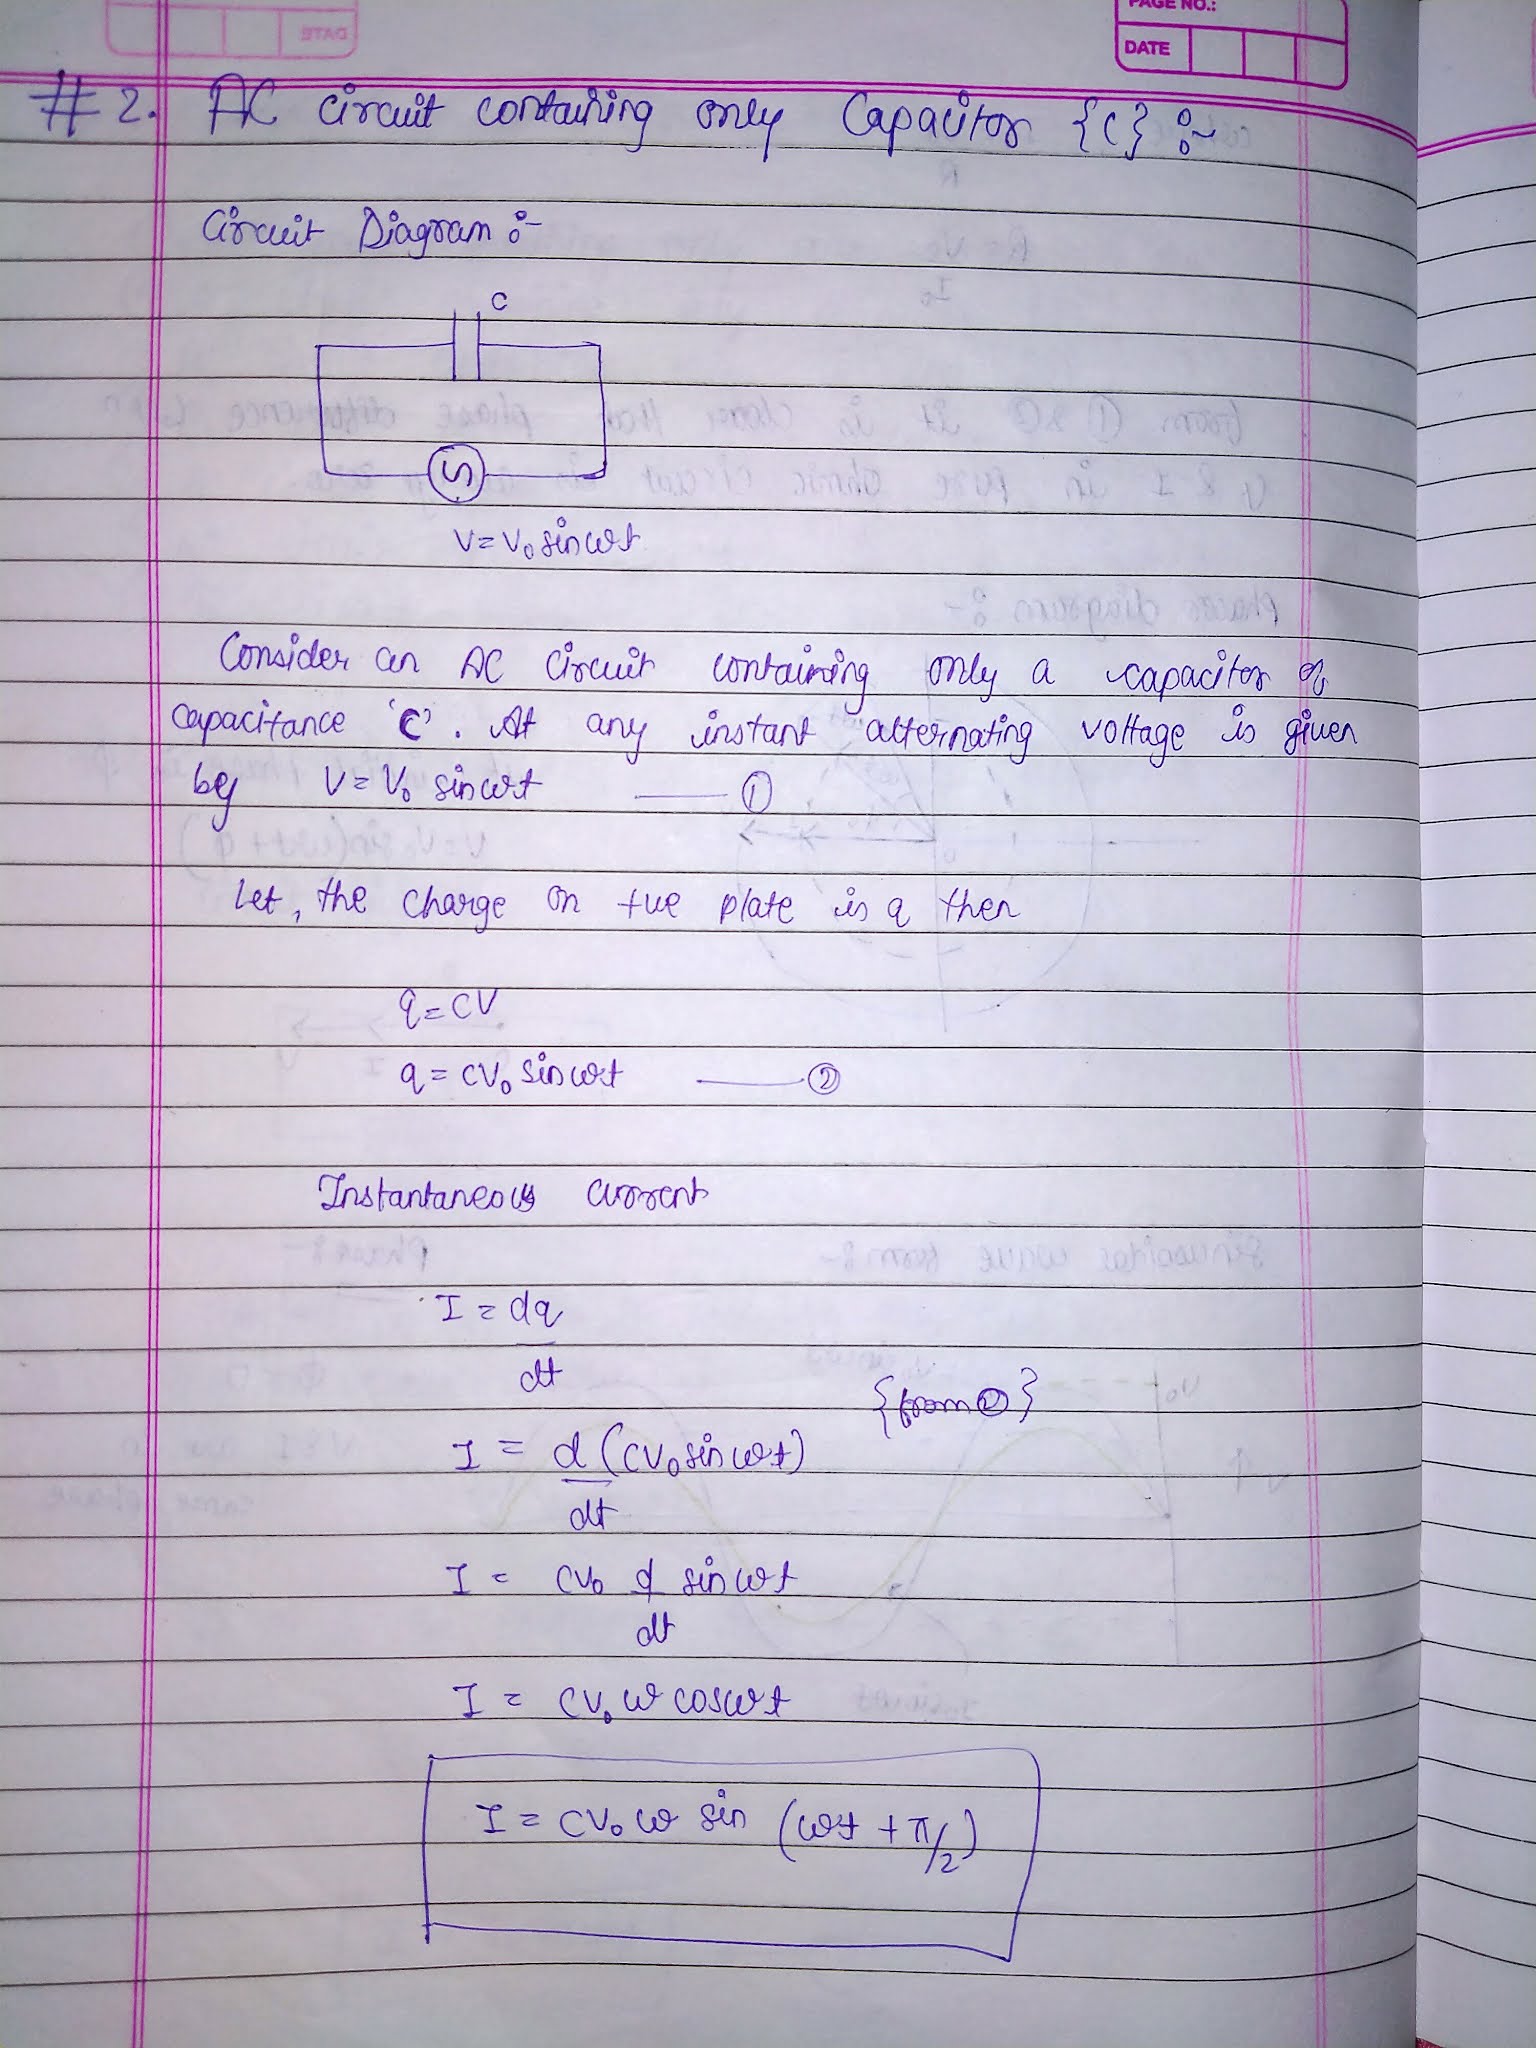 PAGE NO.:
DATE
# 2. AC circuit containing only Capacitor {C} :-
Circuit Diagram :-
C
V=V₀ sinωt
Consider an AC circuit containing only a capacitor of
capacitance 'C'. At any instant alternating voltage is given
by V=V₀ sinωt —— ①
Let, the charge on +ve plate is q then
q=CV
q=CV₀ sinωt —— ②
Instantaneous current
I = dq
dt
{from②}
I = d (CV₀ sinωt)
dt
I = CV₀ d sinωt
dt
I = CV₀ ω cosωt
I = CV₀ ω sin (ωt + π/2)